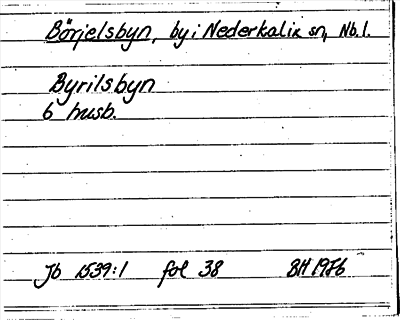 Börjelsbyn, by i Nederkalix sn, Nb. l.
Byrilsbyn
6 husb.
Jb 1539:1 fol 38 BH 1986